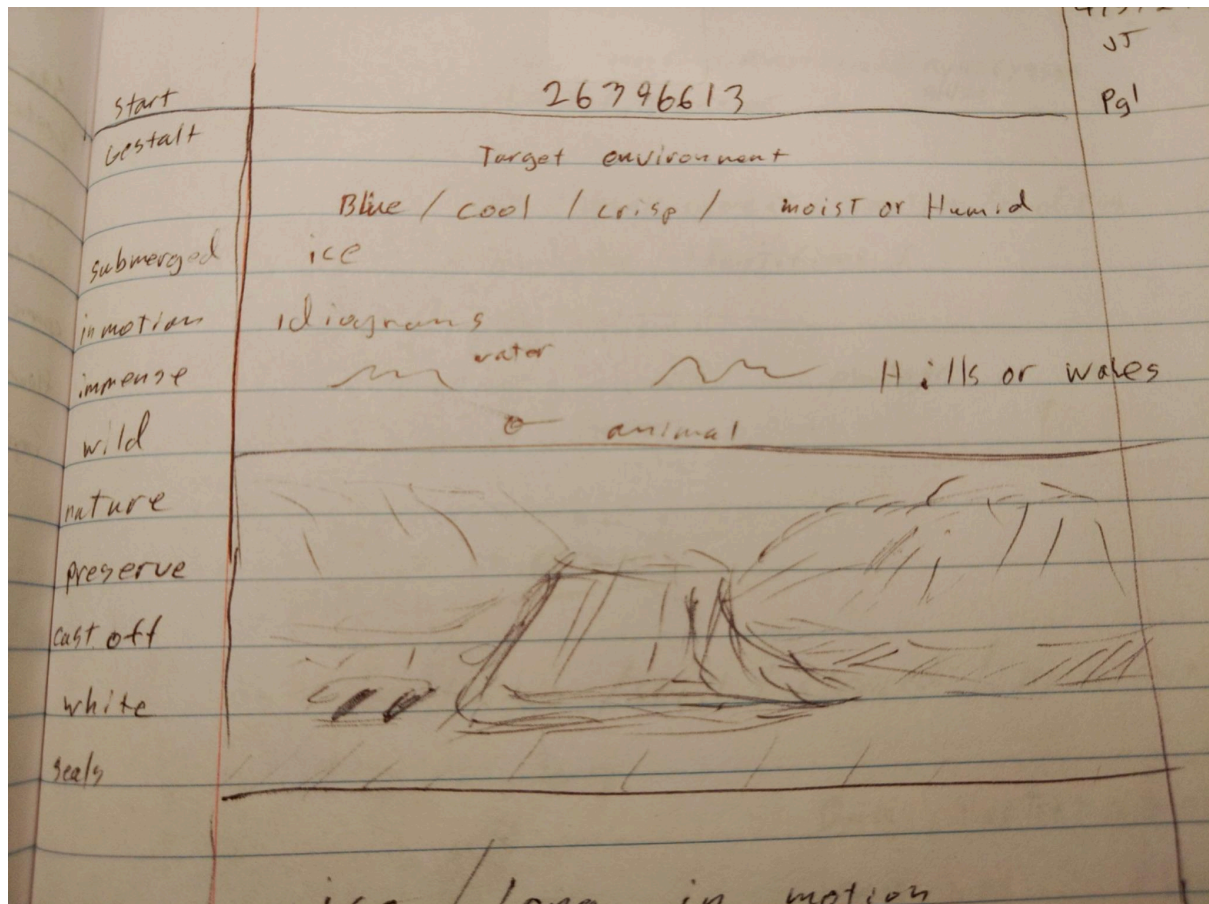 JT
Start 26396613 Pg1
Gestalt
Target environment
Blue / cool / crisp / moist or Humid
submerged ice
in motion idiograms
water
immense Hills or wales
wild animal
nature
preserve
cast off
white
seals
ice / long in motion